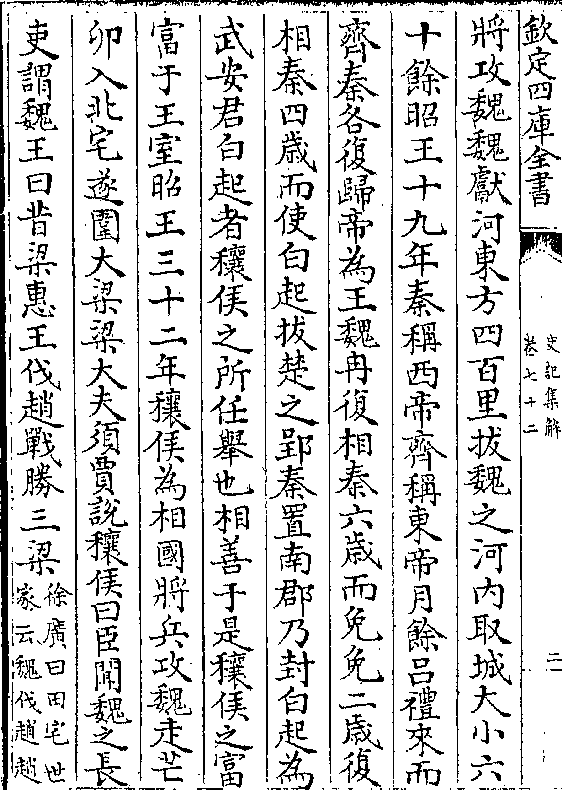 欽定四庫全書
史記集解
卷七十二
二
將攻魏魏獻河東方四百里拔魏之河内取城大小六
十餘昭王十九年秦稱西帝齊稱東帝月餘吕禮來而
齊秦各復歸帝為王魏冉復相秦六歲而免免二歲復
相秦四歲而使白起拔楚之郢秦置南郡乃封白起為
武安君白起者穰侯之所任舉也相善于是穰侯之富
富于王室昭王三十二年穰侯為相國將兵攻魏走芒
卯入北宅遂圍大梁梁大夫須賈說穰侯曰臣聞魏之長
吏謂魏王曰昔梁惠王伐趙戰勝三梁
徐廣曰田宅世
家云魏伐趙趙